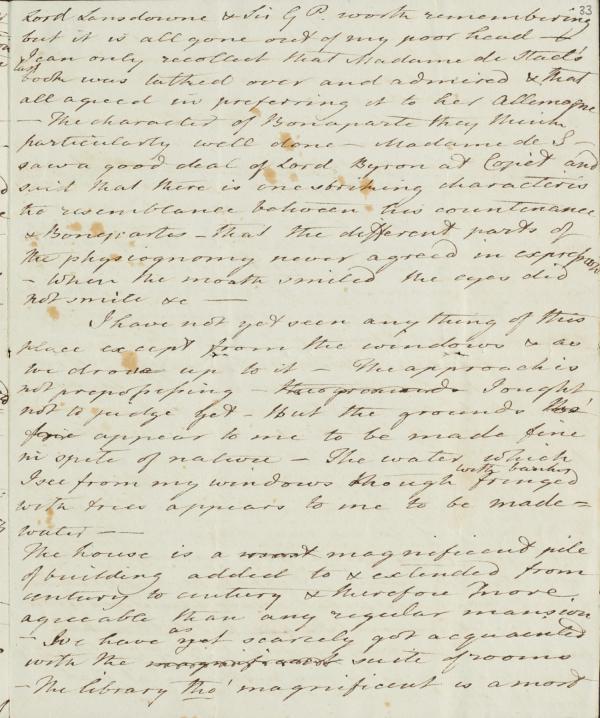 33
Lord Lansdowne & Sir G P. worth remembering
but it is all gone out of my poor head –
I can only recollect that Madame de Stael's
last
book was talked over and admired & that
all agreed in preferring it to her Allemagne
– The character of Bonaparte they think
particularly well done – Madame de S–
saw a good deal of Lord Byron at Copet and
said that there is one striking characteris
tic resemblance between his countenance
& Bonapartes – that the different parts of
the physiognomy never agreed in expression
– When the mouth smiled the eyes did
not smile &c —
I have not yet seen any thing of this
place except from the windows & as
we drove up to it – The approach is
not prepossessing – the grounds I ought
not to judge yet – But the grounds
appear to me to be made fine
in spite of nature – The water which
with banks
I see from my windows though fringed
with trees appears to me to be made=
water —
The house is a most magnificent pile
of building added to & extended from
century to century & therefore more
agreeable than any regular mansion
as
– We have yet scarcely got acquainted
with the magnificent suite of rooms
– The library tho' magnificent is a most